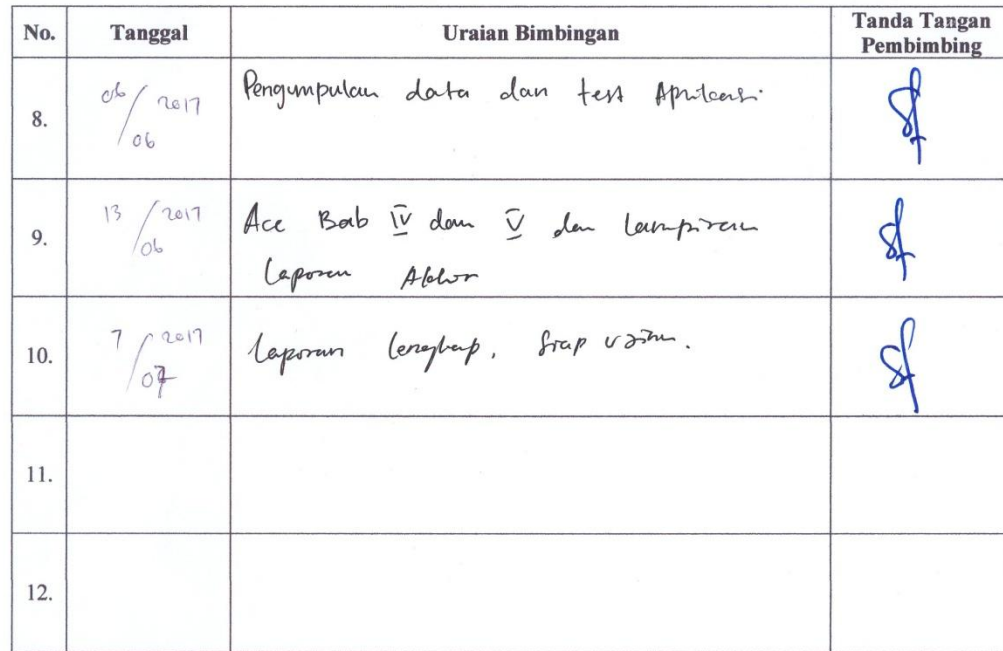 No. Tanggal Uraian Bimbingan Tanda Tangan Pembimbing
8. 06/06 2017 Pengumpulan data dan test Aplikasi.
9. 13/06 2017 Acc Bab IV dan V dan Lampiran
Laporan Akhir
10. 7/07 2017 Laporan lengkap, siap ujian.
11.
12.